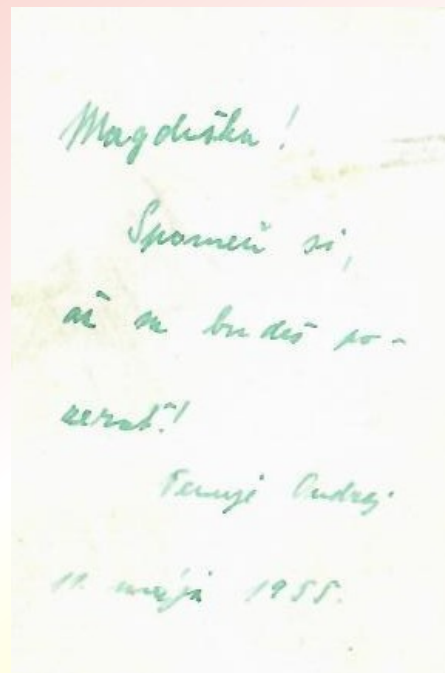 Magduška!
Spomeň si,
až sa budeš po-
zerať!
Ondrej
11. mája 1955.